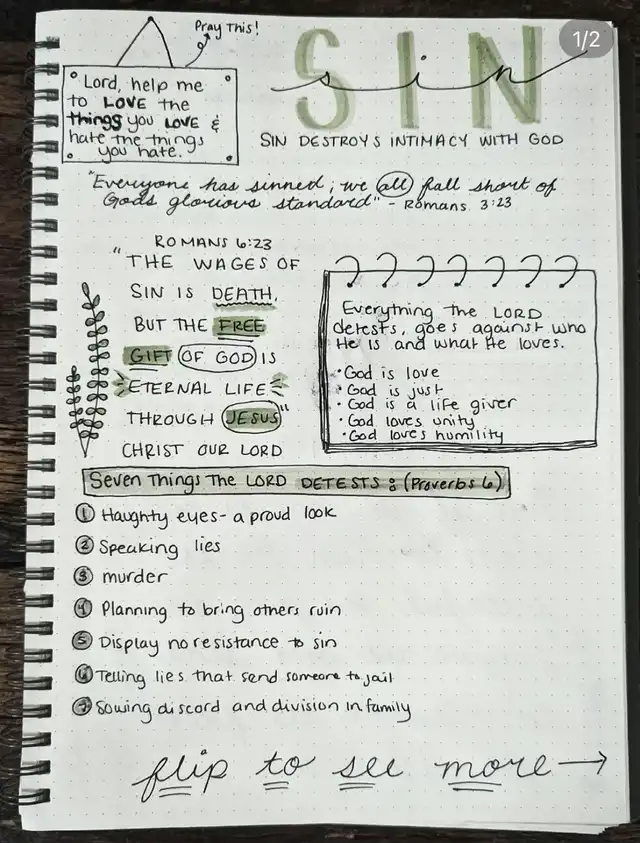 Pray This!
1/2
Lord, help me
to LOVE the
things you LOVE &
hate the things
you hate.
SIN
sin
SIN DESTROYS INTIMACY WITH GOD
"Everyone has sinned; we all fall short of
Gods glorious standard" - Romans 3:23
ROMANS 6:23
"THE WAGES OF
SIN IS DEATH,
BUT THE FREE
GIFT OF GOD IS
ETERNAL LIFE
THROUGH JESUS"
CHRIST OUR LORD
Everything the LORD
detests, goes against who
He is and what He loves.
• God is love
• God is just
• God is a life giver
• God loves unity
• God loves humility
Seven Things The LORD DETESTS: (Proverbs 6)
1 Haughty eyes- a proud look
2 Speaking lies
3 murder
4 Planning to bring others ruin
5 Display no resistance to sin
6 Telling lies that send someone to jail
7 Sowing discord and division in family
flip to see more →